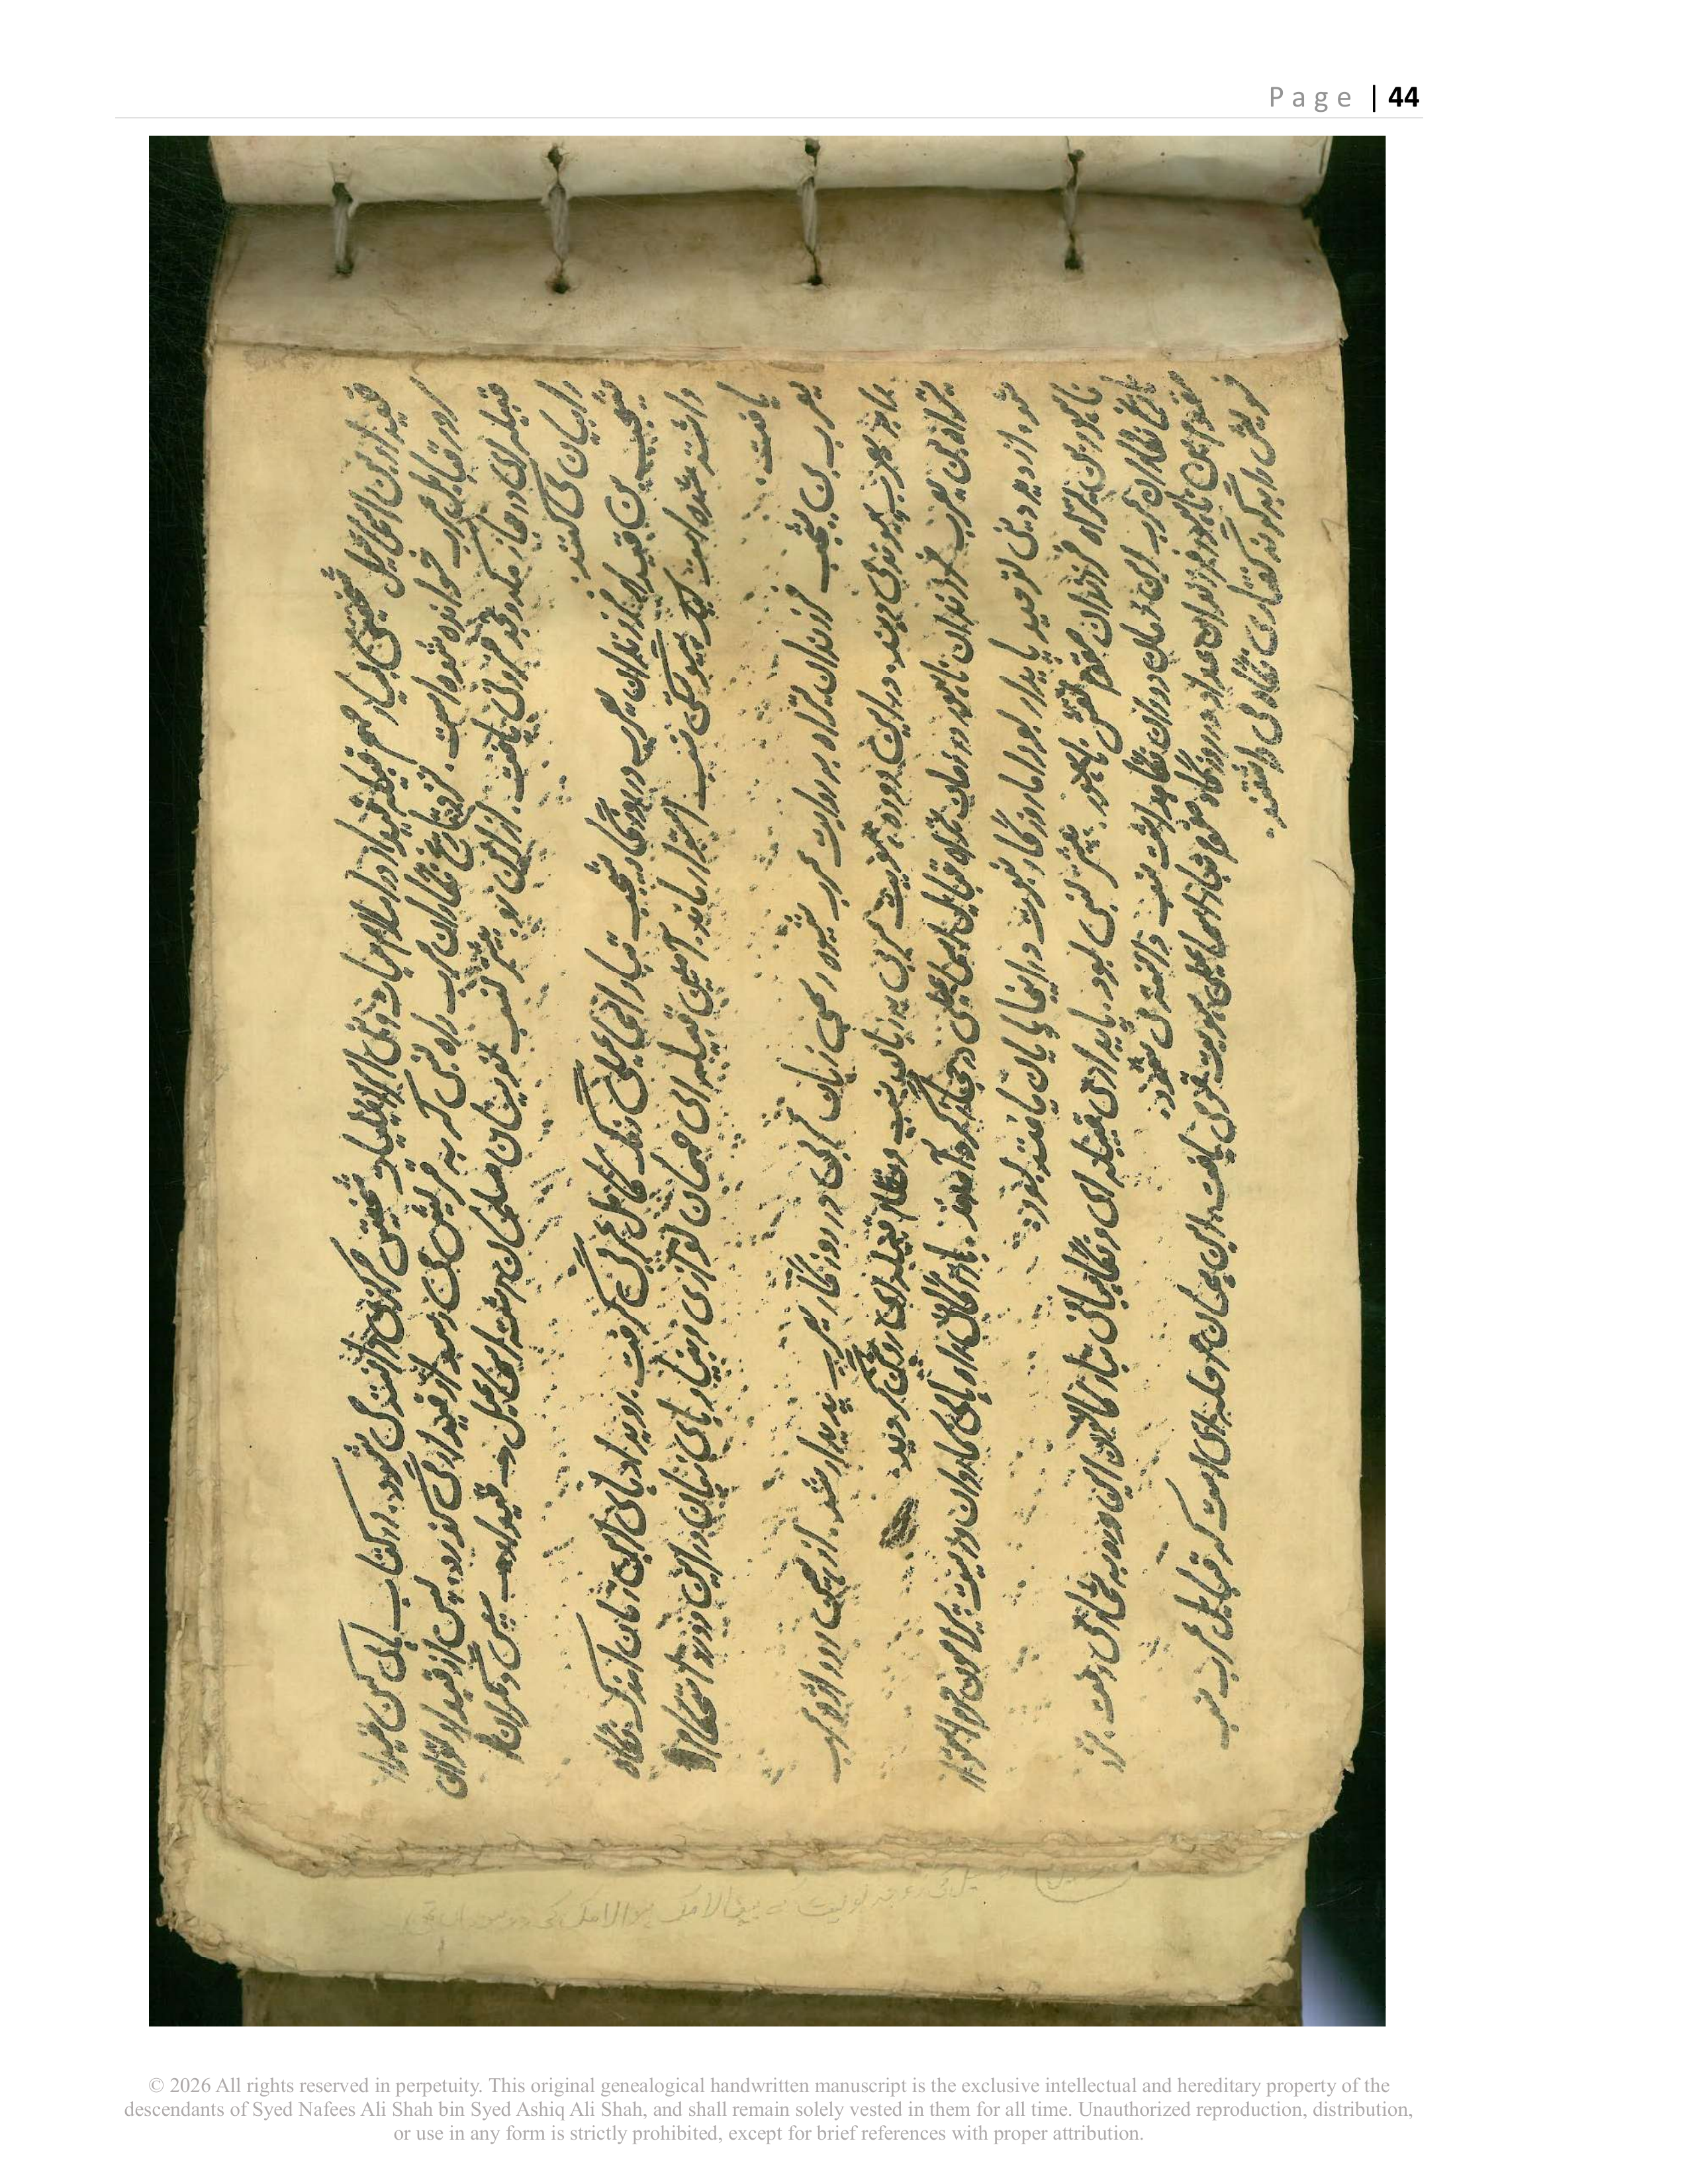 Page | 44
قیدار بن اسماعیل شخصیتی بسیار مهم قبیله قیدار در اسلام حیات و بنی اسرائیلیات شخصیتی مرکزی دانسته می شود. در کتاب های کهن قیدار
در قبایل عرب خوانده شده است. نزد تاریخ نگاران عرب راه نسبی که به قریش می رسد از قیدار می گذرد. پس از قیدار توان
قبیله ای در حجاز مکه و نجد فزونی یافت. از این رو بیشتر نسب نویسان مسلمان رشته اسماعیل ← قیدار ← پس دیگران را
را بیان می کنند.
یشجب بن قیدار فرزندان یعرب در روزگار یشجب تبار اسماعیلی رنگ کامل عربی گرفت. رویدادهای این زمان اندک نگاه
داشته شده است لیک پیوستگی نسب استوار ماند. آیین قبیله ای مهمان نوازی و بنیادهای زبان در این دوره استحکام
یافت.
یعرب بن یشجب فرزندان یترا به روایت عرب شیوه رسمی زبان عربی در روزگار یعرب پدیدار شد. از همین رو واژه عرب
با یعرب پیوند می دهند. در این دوره هویت عربی بر زبان نسب و نظام قبیله ای روشن گردید.
بن یعرب فرزندان ناحور در زمان قبایل اسماعیلی در حجاز گرد آمدند. بازرگانی راه های کاروان و امنیت پیرامون حرم استوار
شد. از دید دینی توحید پایدار بود اما روزگار نبوت در اینجا پایان یافته بود.
ناحور بن فرزندان مقوم نقش ناحور بیشتر نسبی بود. پایداری قبیله ای و نگاهبانی تبار کارهای این دوره به شمار می رفت. نزد
تاریخ نگاران عرب این زمان دوران نگاهداشت نسب دانسته می شود.
مقوم بن ناحور فرزندان در روزگار مقوم تبار اسماعیلی هویت قومی یافت. این همان مرحله ای است که قبایل عرب نسب
خویش را به گونه گفتاری نگاه می داشتند.
© 2026 All rights reserved in perpetuity. This original genealogical handwritten manuscript is the exclusive intellectual and hereditary property of the
descendants of Syed Nafees Ali Shah bin Syed Ashiq Ali Shah, and shall remain solely vested in them for all time. Unauthorized reproduction, distribution,
or use in any form is strictly prohibited, except for brief references with proper attribution.